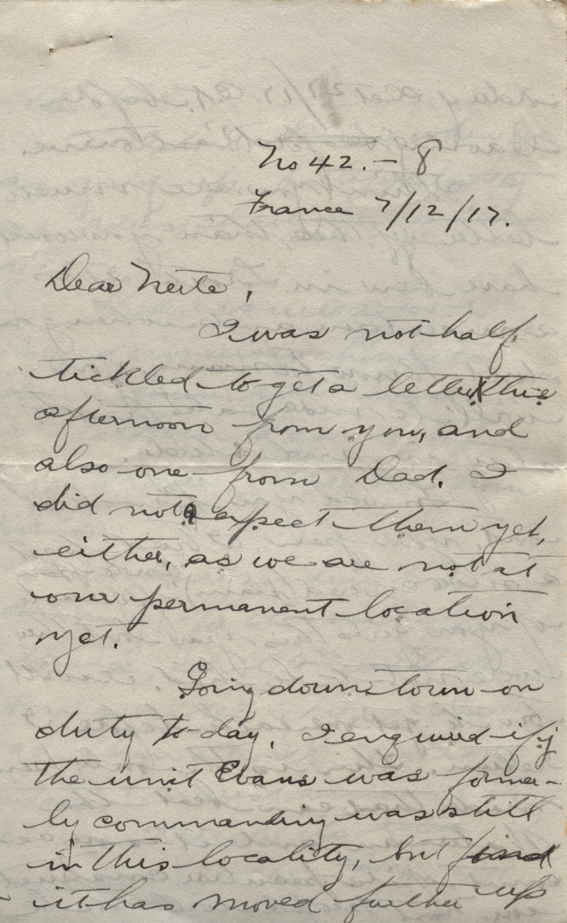 No 42. – 8
France 7/12/17.
Dear Nerte,
I was not half
tickled to get a letter this
afternoon from you, and
also one from Dad. I
did not expect them yet,
either, as we are not at
our permanent location
yet.
Going down town on
duty to-day, I enquired if
the unit Evans was former-
ly commanding was still
in this locality, but find
it has moved further up